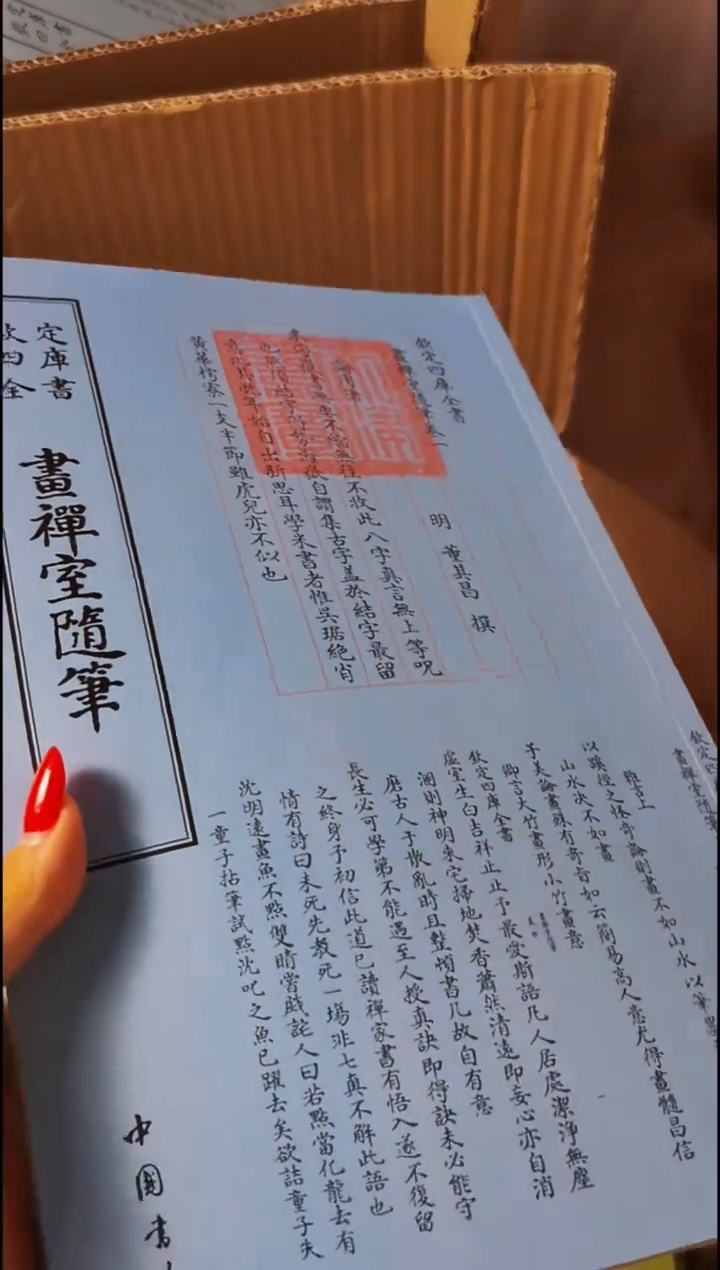 欽定四庫全書
畫禪室隨筆卷一
明 董其昌 撰
論用筆
米海嶽書無垂不縮無往不收此八字真言無上等呪
也然須結字得勢海嶽自謂集古字蓋於結字最留
意比其晚年始自出新思耳學米書者惟吳琚絕肖
黃華樗寮一支半節雖虎兒亦不似也
欽定四
畫禪室隨筆
雜言上
以蹊徑之怪奇論則畫不如山水以筆墨
山水決不如畫
子美論畫殊有奇旨如云簡易高人意尤得畫髓昌信
卿言大竹畫形小竹畫意
欽定四庫全書
虛室生白吉祥止止予最愛斯語凡人居處潔淨無塵
溷則神明來宅掃地焚香蕭然清遠即妄心亦自消
磨古人于散亂時且整頓書几故自有意
長生必可學第不能遇至人授真訣即得訣未必能守
之終身予初信此道已讀禪家書有悟入遂不復留
情有詩曰未死先教死一場非七真不解此語也
沈明遠畫魚不點雙睛嘗戲詫人曰若點當化龍去有
一童子拈筆試點沈叱之魚已躍去矣欲詰童子失
定庫書
欽四全
畫禪室隨筆
中國書